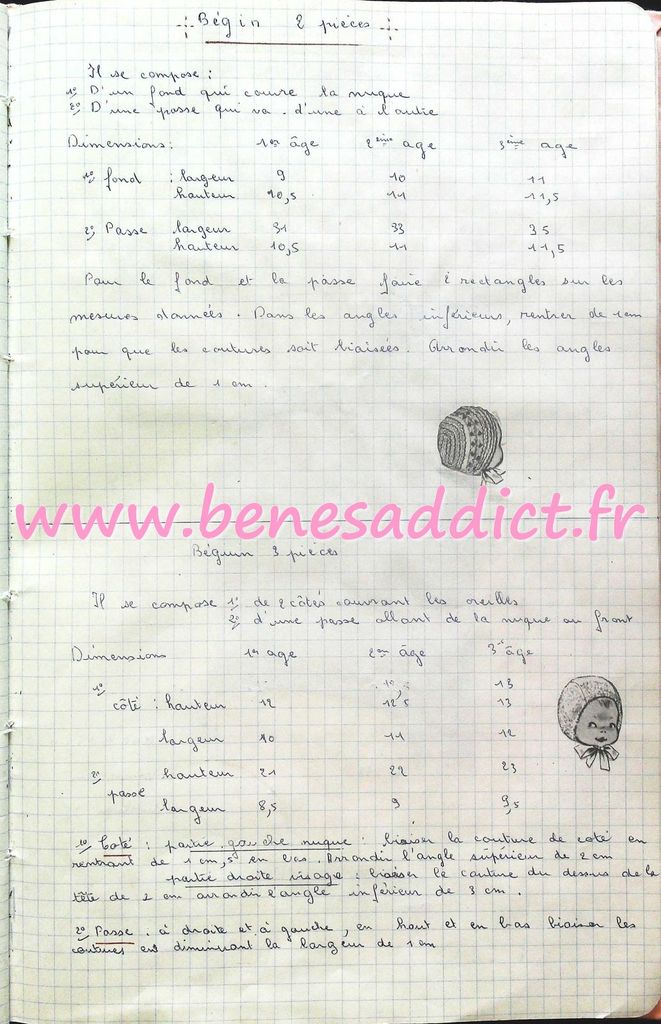 Bégin 2 pièces
Il se compose :
1° D'un fond qui couvre la nuque
2° D'une passe qui va d'une à l'autre
Dimensions : 1er âge 2ème age 3ème age
1° fond : largeur 9 10 11
hauteur 10,5 11 11,5
2° Passe largeur 31 33 35
hauteur 10,5 11 11,5
Pour le fond et la passe faire 2 rectangles sur les
mesures données. Dans les angles inférieurs, rentrer de 1cm
pour que les coutures soit biaisées. Arrondir les angles
supérieur de 1 cm.
www.benesaddict.fr
Béguin 3 pièces
Il se compose 1° de 2 côtés couvrant les oreilles
2° d'une passe allant de la nuque au front
Dimensions 1er age 2em âge 3em âge
1° 13
côté : hauteur 12 12,5 13
largeur 10 11 12
2° hauteur 21 22 23
passe
largeur 8,5 9 9,5
1° Coté : partie gauche nuque : biaiser la couture de coté en
rentrant de 1 cm,5 en bas. Arrondir l'angle supérieur de 2 cm
partie droite visage : biaiser le couture du dessus de la
tête de 2 cm arrondir l'angle inférieur de 3 cm.
2° Passe. à droite et à gauche, en haut et en bas biaiser les
coutures en diminuant la largeur de 1 cm